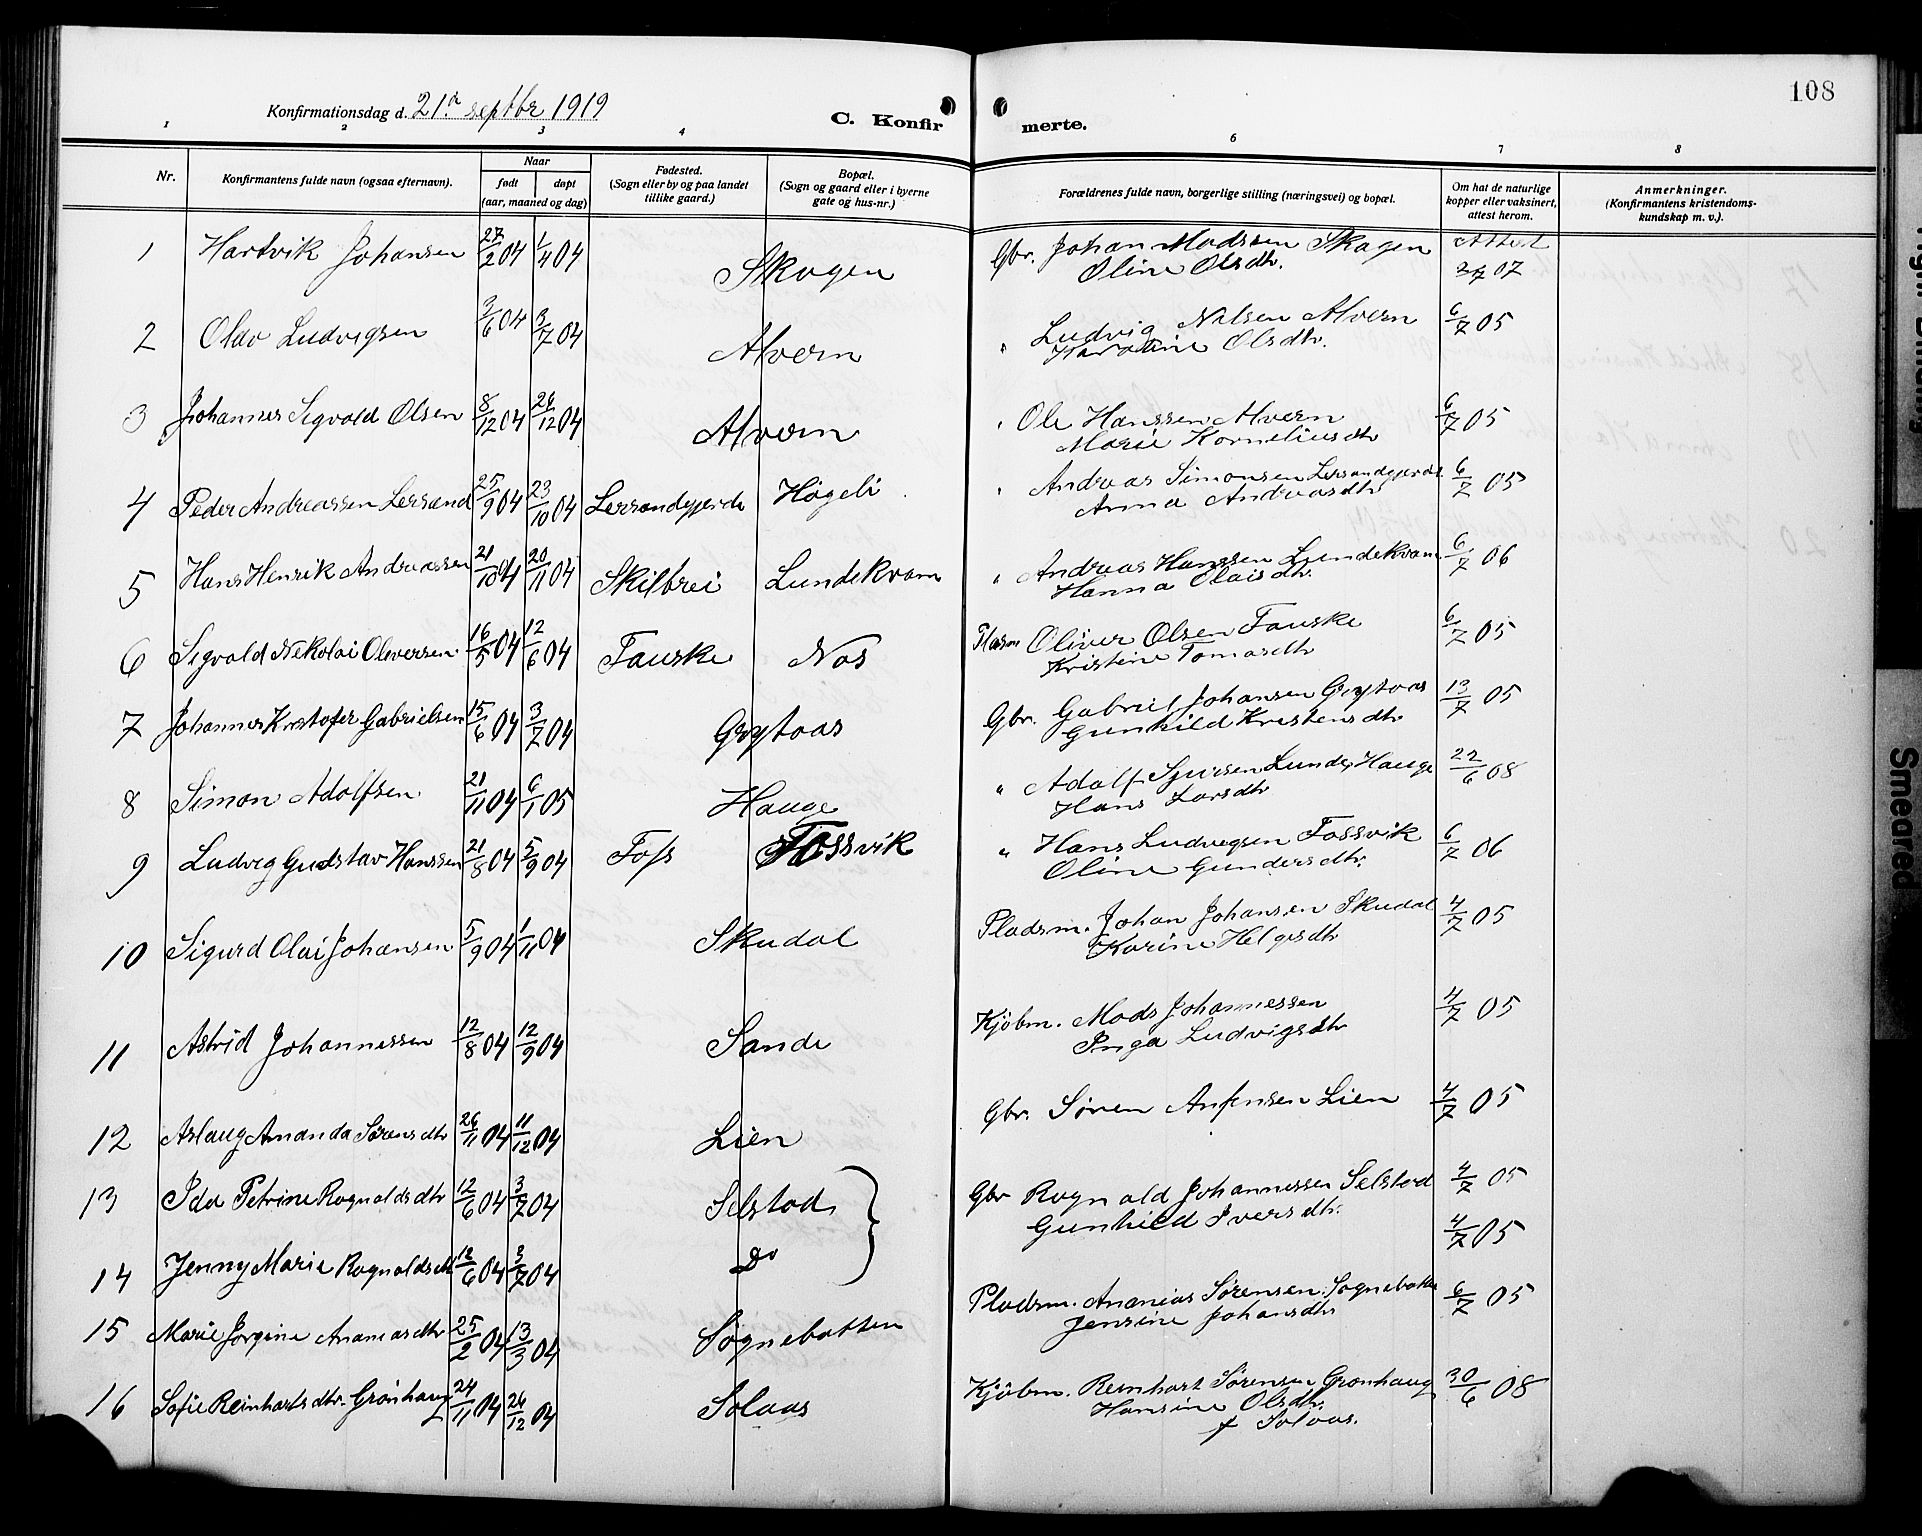 108
Konfirmationsdag d. 21de septbr 1919
C. Konfirmerte.
1 2 3 4 5 6 7 8
Nr. Konfirmantens fulde navn (ogsaa efternavn). Naar født døpt (aar, maaned og dag) Fødested. (Sogn eller by og paa landet tillike gaard.) Bopæl. (Sogn og gaard eller i byerne gate og hus-nr.) Forældrenes fulde navn, borgerlige stilling (næringsvei) og bopæl. Om hat de naturlige kopper eller vaksinert, attest herom. Anmerkninger. (Konfirmantens kristendomskundskap m. v.).
1 Hartvik Johansen 27/2 04 1/4 04 Skogen Gbr. Johan Madssen Skogen Attest
Oline Olsdtr. 07
2 Olav Ludvigsen 3/6 04 3/7 04 Alvern " Ludvig Nilsen Alvern 6/7 05
Karoline Olsdtr.
3 Johannes Sigvald Olsen 8/12 04 26/12 04 Alvern " Ole Hanssen Alvern 6/7 05
Marie Korneliusdtr
4 Peder Andreassen Lersand 25/9 04 23/10 04 Lersandgjerde Høgeli " Andreas Simonsen Lersandgjerde 6/7 05
Anna Andreasdtr
5 Hans Henrik Andreassen 21/10 04 20/11 04 Skilbrei Lundekvam " Andreas Hanssen Lundekvam 6/7 06
Hanna Olaisdtr.
6 Sigvald Nikolai Oliversen 16/5 04 12/6 04 Fauske Nos Plasm Oliver Olsen Fauske 6/7 05
Kristine Tomasdtr
7 Johannes Kristofer Gabrielsen 15/6 04 3/7 04 Grytaas Gbr. Gabriel Johansen Grytaas 13/7 05
Gunhild Kristensdtr
8 Simon Adolfsen 21/11 04 6/1 05 Hauge " Adolf Sjursen Lunde, Hauge 22/6 08
Hans Larsdtr
9 Ludvig Gustav Hanssen 21/8 04 5/9 04 Foss Fossvik " Hans Ludvigsen Fossvik 6/7 06
Oline Gundersdtr.
10 Sigurd Olai Johansen 5/9 04 1/11 04 Skudal Pladsm. Johan Johansen Skudal 4/7 05
Karine Helgesdtr
11 Astrid Johannessen 12/8 04 12/9 04 Sande Kjøbm. Mads Johannessen 4/7 05
Inga Ludvigsdtr
12 Aslaug Amanda Sørensdtr 26/11 04 11/12 04 Lien Gbr. Søren Anfinsen Lien 4/7 05
13 Ida Petrine Ragnaldsdtr 12/6 04 3/7 04 Selstad Gbr Ragnald Johannessen Selstad 4/7 05
Gunhild Iversdtr.
14 Jenny Marie Ragnaldsdtr 12/6 04 3/7 04 Do 4/7 05
15 Marie Jørgine Ananiasdtr 25/2 04 13/3 04 Søgnebotten Pladsm. Ananias Sørensen Søgnebotten 6/7 05
Jensine Johansdtr
16 Sofie Reinhartsdtr. Grønhaug 24/11 04 26/12 04 Solaas Kjøbm. Reinhart Sørensen Grønhaug 30/6 08
Hansine Olsdtr.
f Solaas.
Smeared